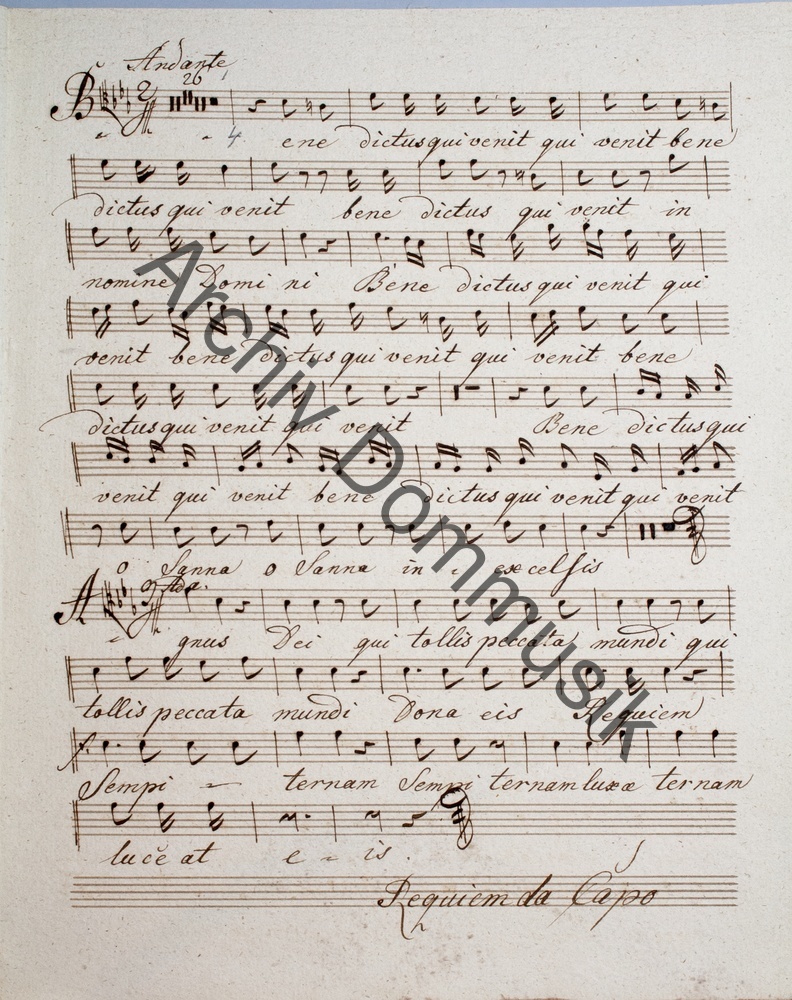 Andante
26
4
Bene dictus qui venit qui venit bene
dictus qui venit bene dictus qui venit in
nomine Domi ni Bene dictus qui venit qui
venit bene dictus qui venit qui venit bene
dictus qui venit qui venit Bene dictus qui
venit qui venit bene dictus qui venit qui venit
o Sanna o Sanna in excelsis
Ada.
Agnus Dei qui tollis peccata mundi qui
tollis peccata mundi Dona eis Requiem
Sempi - ternam Sempi ternam luxæ ternam
luceat e - is.
Requiem da Capo
Archiv Dommusik